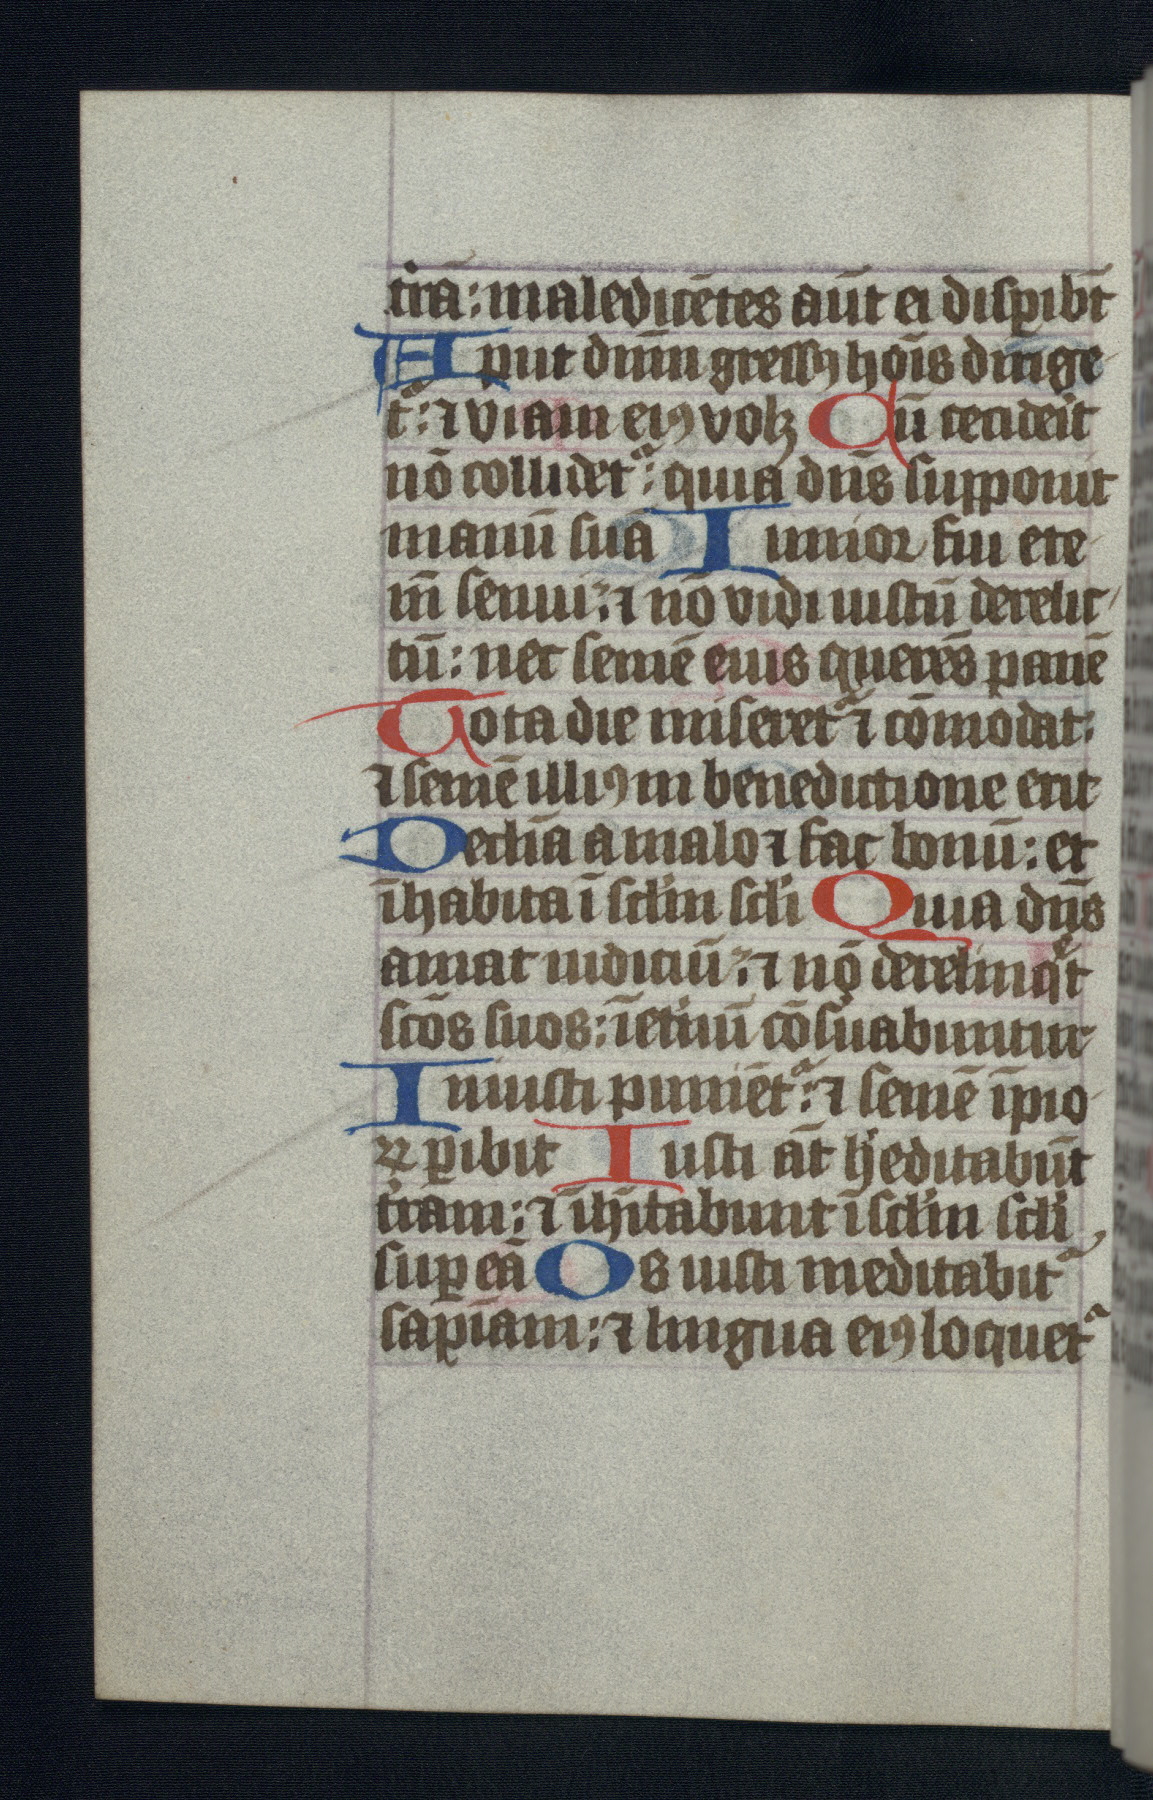 tr̄ā: maledicētes aūt ei disꝑibūt
Aput dn̄m gressꝯ hoīs dirige-
t᷑: ⁊ viam eiꝯ volꝫ Cū cecideīt
nō collidet᷑: quia dn̄s supponit
manū suā Iunior fui ete-
ni̅ senui: ⁊ nō vidi iustū derelic-
tū: nec semē eius querēs panē
Tota die miseret᷑ ⁊ cōmodat:
⁊ semē illiꝯ in benedictione erit
Declīa a malo ⁊ fac bonū: et
īhabita ī scl̄m scl̄i Quia dn̄s
amat iudiciū: ⁊ nō derelinqͥt
scōs suos: īet̄nū cōsuabuntur
Iniusti puniēt᷑: ⁊ semē īpio-
ꝝ ꝑibit Iusti āt h̄editabūt
tr̄am: ⁊ īhītabunt ī scl̄m scl̄i
suꝑ eā Os iusti meditabit᷑
sapīam: ⁊ lingua eiꝯ loquet᷑